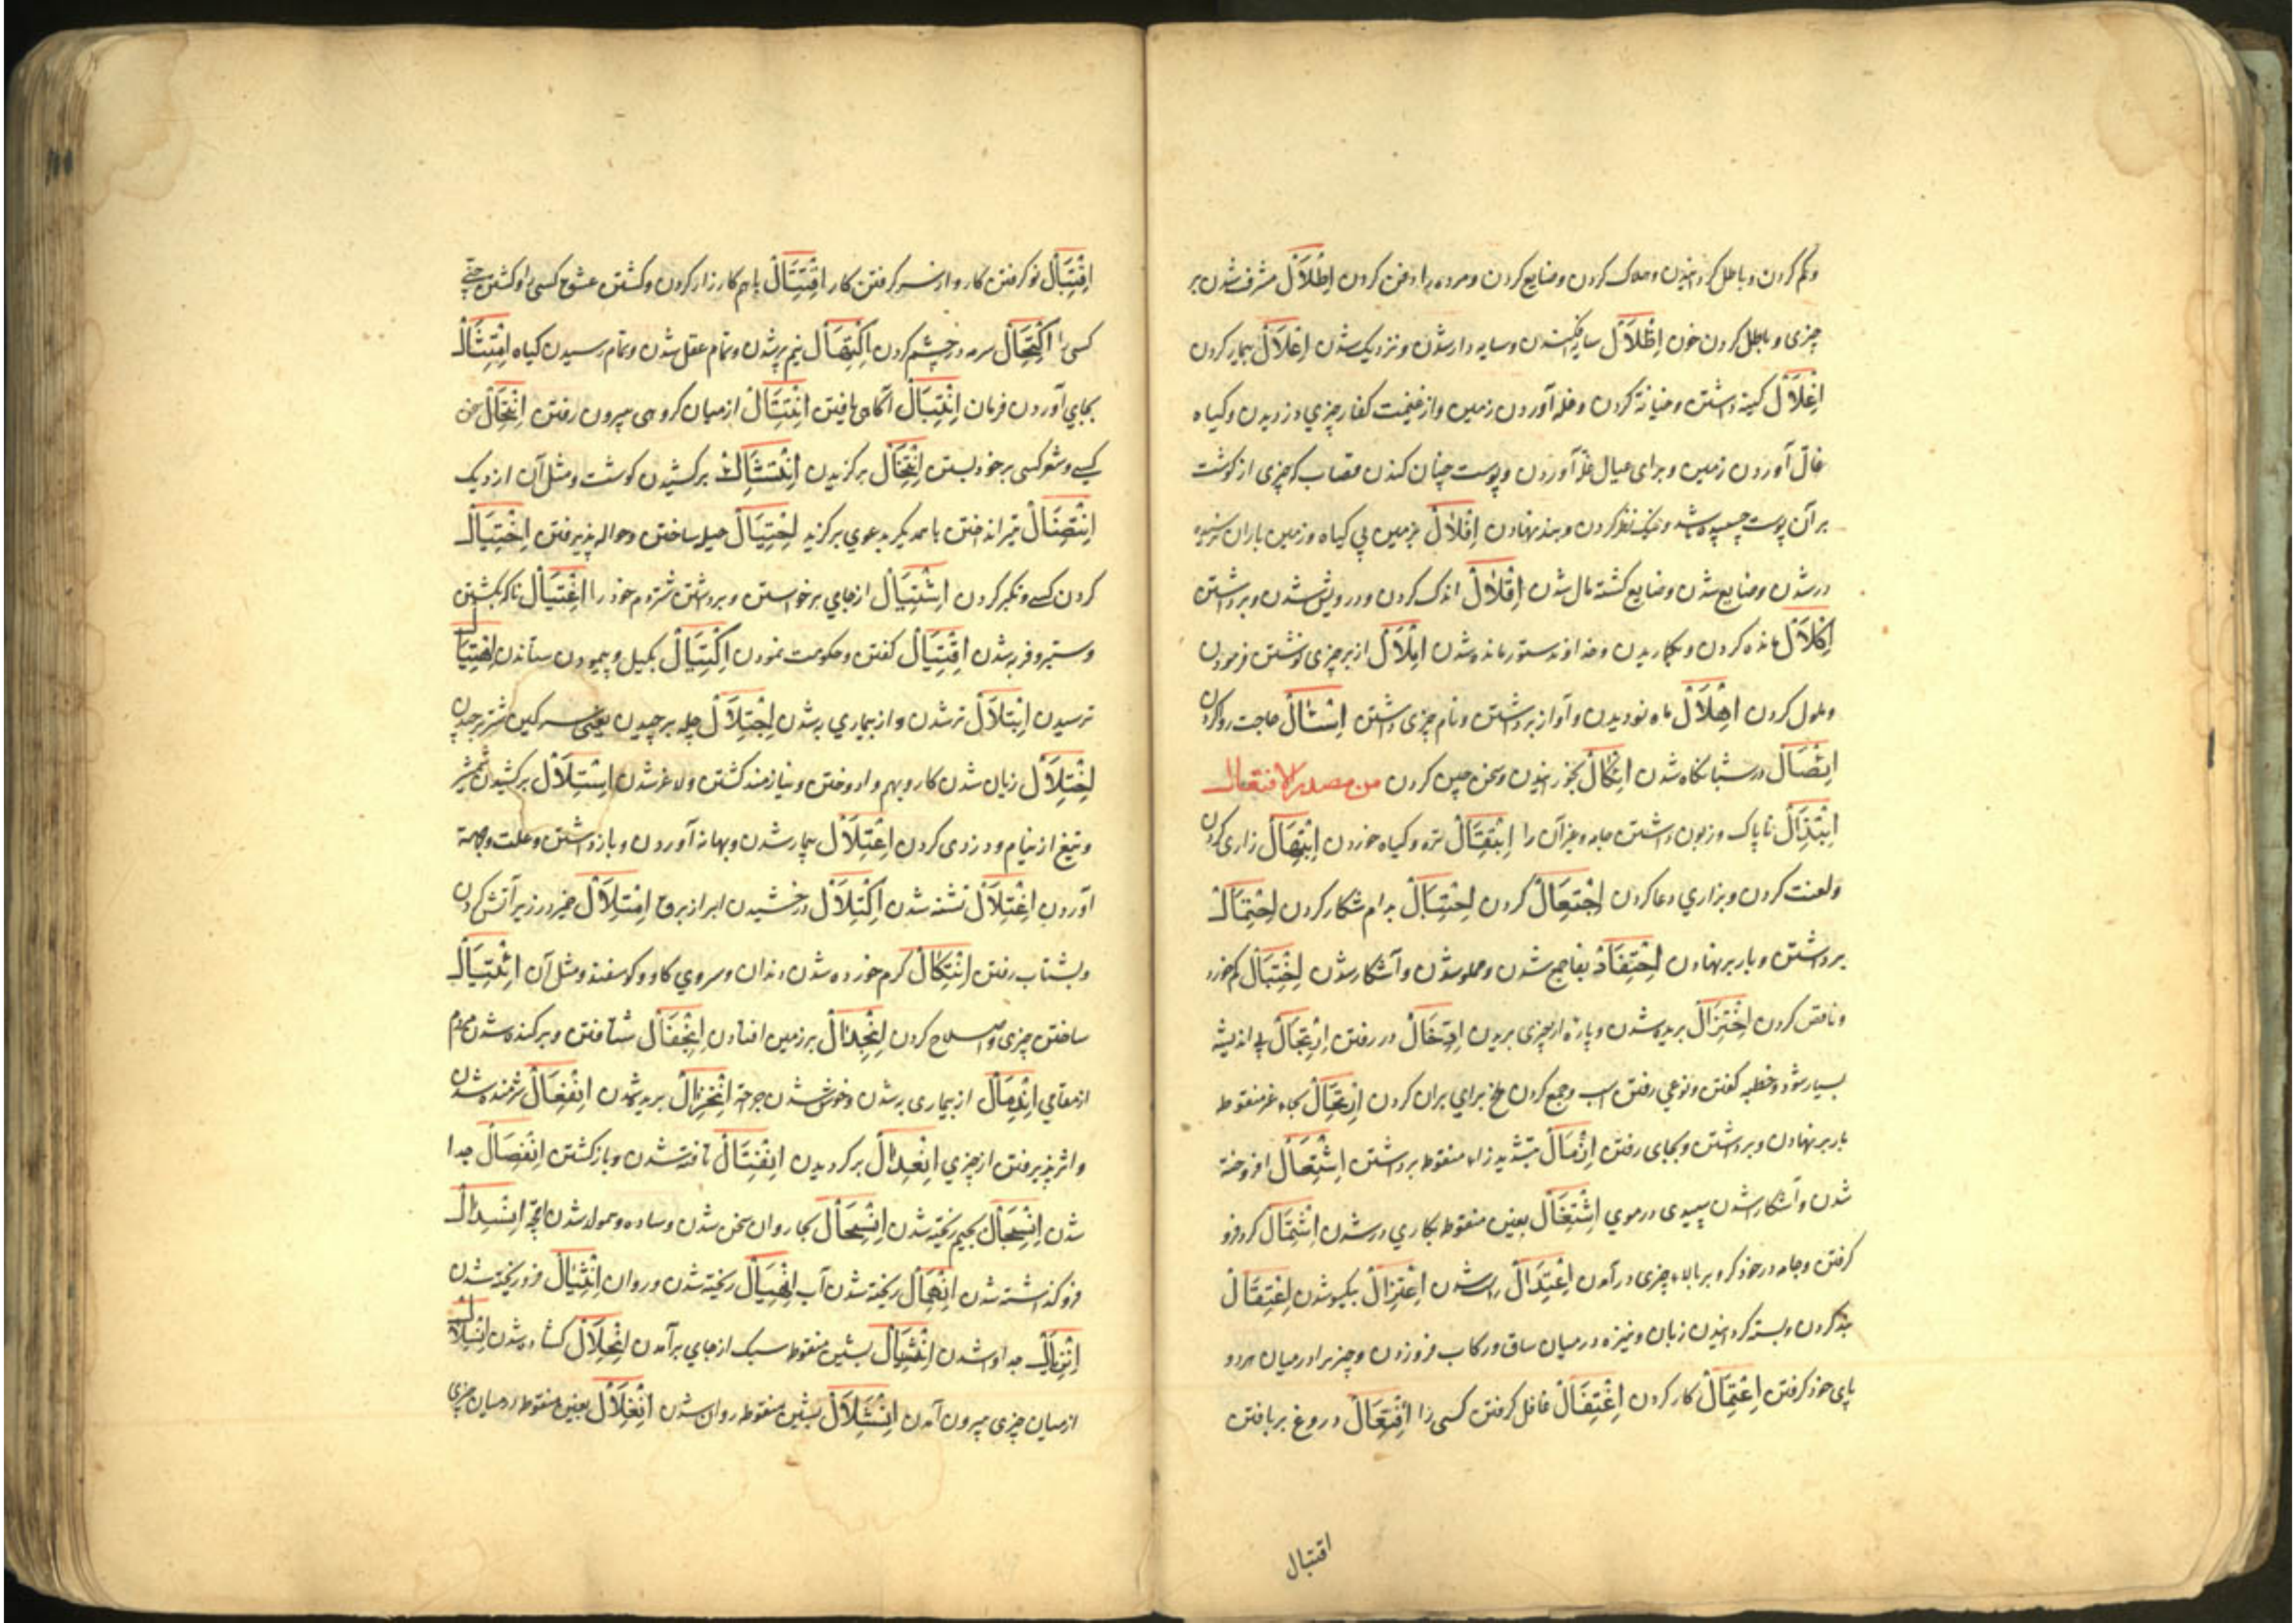 و کم کردن و باطل کردانیدن و هلاک کردن و ضایع کردن و مرده را دفن کردن اِطْلَالْ مشرف شدن بر
چیزی و باطل کردن خون اِظْلَالْ سایه افکندن و سایه دار شدن و نزدیک شدن اِعْلَالْ بیمار کردن
اِغْلَالْ کینه داشتن و خیانة کردن و غله آوردن زمین و از غنیمت کفار چیزی دزدیدن و کیاه
آوردن زمین و برای عیال غله آوردن و پوست چنان کندن قصاب که چیزی از کوشت
بر آن پوست چسپیده باشد و نظر کردن و بند نهادن اِفْلَالْ بزمین بی کیاه و زمین باران نرسیده
در شدن و ضایع شدن و ضایع کشته مال شدن اِقْلَالْ اندک کردن و درویش شدن و برداشتن
اِکْلَالْ مانده کردن و خداوند ستور مانده شدن اِمْلَالْ از بر چیزی نوشتن فرمودن
و ملول کردن اِهْلَالْ ماه نو دیدن و آواز برداشتن و نام چیزی داشتن حاجت روا کردن
در شبانکاه شدن بخورانیدن و سخن چین کردن من مصدر الافتعال
اِبْتِذَالْ ناپاک و زبون داشتن جامه و غیر آن را اِبْتِقَالْ تره و کیاه خوردن اِبْتِهَالْ زاری کردن
و لعنت کردن و بزاری دعا کردن اِجْتِعَالْ کردن اِحْتِبَالْ بدام شکار کردن اِحْتِمَالْ
برداشتن و بار بر نهادن اِحْتِفَالْ بفا جمع شدن و مملو شدن و آشکار شدن اِخْتِبَالْ کم خورد
و ناقص کردن اِخْتِزَالْ بریده شدن و پاره از چیزی بریدن اِدِّخَالْ در رفتن اِرْتِجَالْ بی اندیشه
بسیار شود و خطبه کفتن و نوعی رفتن اسب و جمع کردن ملخ برای بریان کردن اِرْتِحَالْ بحاء غیر منقوطه
بار بر نهادن و برداشتن و بجای رفتن اِزِّمَالْ بتشدید زاء منقوطه برداشتن اِشْتِعَالْ افروخته
شدن و آشکار شدن سپیدی در موی اِشْتِغَالْ بغین منقوطه بکاری در شدن اِشْتِمَالْ کرد فرو
کرفتن و جامه در خود کرد و بر بالاء چیزی در آمدن اِعْتِدَالْ راست شدن اِعْتِزَالْ بیکسو شدن اِعْتِقَالْ
بند کردن و بسته کردانیدن زبان و نیزه در میان ساق و رکاب فرو زدن و چیز را در میان هر دو
پای خود کرفتن اِعْتِمَالْ کار کردن اِغْتِفَالْ غافل کرفتن کسی را اِفْتِعَالْ دروغ بر بافتن
اقتبال
اِقْتِبَالْ نو کرفتن کار و از سر کرفتن کار اِقْتِتَالْ با هم کارزار کردن و کشتن عشق کسی را و کشتن جنّ
کسی را اِکْتِحَالْ سرمه در چشم کردن اِکْتِهَالْ نیم پیر شدن و تمام عقل شدن و تمام رسیدن کیاه اِمْتِثَالْ
بجای آوردن فرمان اِنْتِبَالْ آکاهی یافتن اِنْتِثَالْ از میان کروهی بیرون رفتن اِنْتِحَالْ سخن
کسی و شعر کسی بر خود بستن اِنْتِخَالْ برکزیدن اِنْتِشَالْ برکشیدن کوشت و مثل آن از دیک
اِنْتِضَالْ تیر انداختن با همدیکر بدعوی اِحْتِیَالْ حیله ساختن و حواله پذیرفتن اِخْتِیَالْ
کردن کسی و تکبر کردن اِشْتِیَالْ از جای برخواستن و برداشتن شتر دم خود را اِغْتِیَالْ ناکه بکشتن
و ستبر و فربه شدن اِقْتِیَالْ کفتن و حکومت نمودن اِکْتِیَالْ بکیل و پیمودن ستاندن اِهْتِیَالْ
ترسیدن اِبْتِلَالْ تر شدن و از بیماری به شدن اِجْتِلَالْ جله بر چیدن یعنی سرکین شتر بر چیدن
اِخْتِلَالْ زیان شدن کار و بهم وا دوختن و نیازمند کشتن و لاغر شدن اِسْتِلَالْ برکشیدن شمشیر
و تیغ از نیام و دزدی کردن اِعْتِلَالْ بیمار شدن و بهانه آوردن و بازداشتن و علت و
آوردن اِغْتِلَالْ تشنه شدن اِکْتِلَالْ درخشیدن ابر از برق اِمْتِلَالْ خمیر در زیر آتش کردن
و بشتاب رفتن اِئْتِکَالْ کرم خورده شدن دندان و سروی کاو و کوسفند و مثل آن اِئْتِیَالْ
ساختن چیزی و اصلاح کردن اِنْجِدَالْ بر زمین افتادن اِنْجِفَالْ شتافتن و برکنده شدن مردم
از مقامی اِنْدِمَالْ از بیماری به شدن و خوش شدن جراحة اِنْخِزَالْ بریده شدن اِنْفِعَالْ شرمنده شدن
و اثر پذیرفتن از چیزی اِنْعِدَالْ برکردیدن اِنْفِتَالْ تافته شدن و باز کشتن اِنْفِصَالْ جدا
شدن اِنْسِجَالْ بجیم ریخته شدن اِنْسِحَالْ بحا روان سخن شدن و ساده و هموار شدن اِنْسِدَالْ
فرو کذاشته شدن اِنْهِمَالْ ریخته شدن آب اِنْهِیَالْ ریخته شدن و روان اِنْثِیَالْ فرو ریخته شدن
اِنْزِیَالْ جدا وا شدن اِنْشِیَالْ بشین منقوطه سبک از جای برآمدن اِنْحِلَالْ کشاده شدن اِنْسِلَالْ
از میان چیزی بیرون آمدن اِنْشِلَالْ بشین منقوطه روان شدن اِنْغِلَالْ بغین منقوطه در میان چیزی